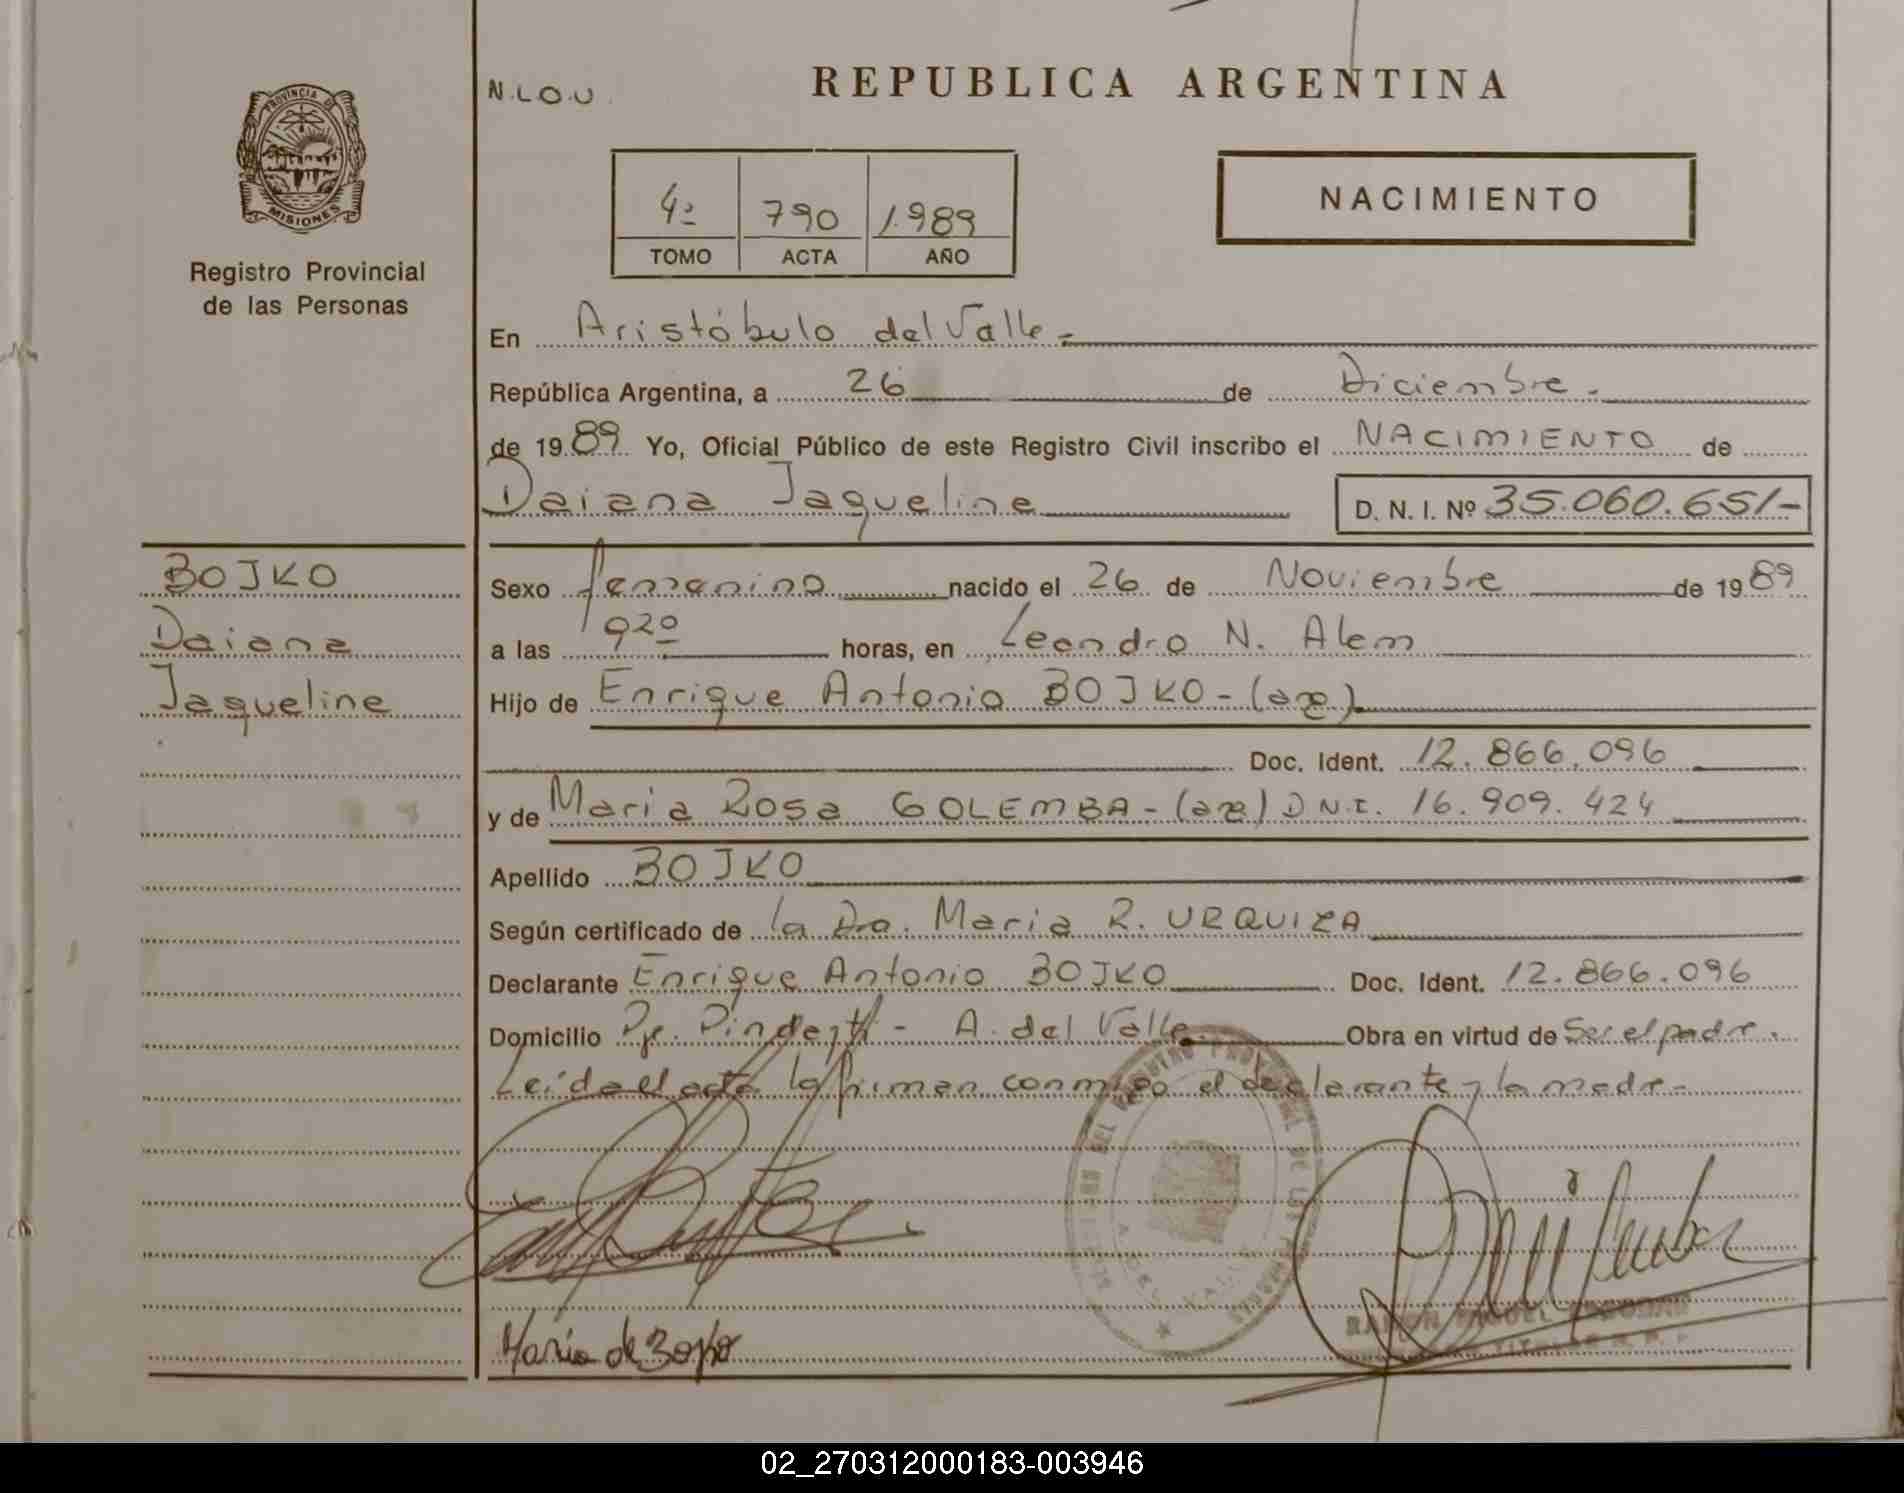 N.L.O.U.
REPUBLICA ARGENTINA
PROVINCIA DE
MISIONES
Registro Provincial
de las Personas
4º 790 1.989
TOMO ACTA AÑO
NACIMIENTO
En Aristóbulo del Valle.-
República Argentina, a 26 de Diciembre.-
de 1989 Yo, Oficial Público de este Registro Civil inscribo el NACIMIENTO de
Daiana Jaqueline D. N. I. Nº 35.060.651-
BOJKO
Daiana
Jaqueline
Sexo femenino nacido el 26 de Noviembre de 1989
a las 920 horas, en Leandro N. Alem
Hijo de Enrique Antonio BOJKO-(arg)
Doc. Ident. 12.866.096
y de Maria Rosa GOLEMBA-(arg) D.N.I. 16.909.424
Apellido BOJKO
Según certificado de la Dra. Maria R. URQUIZA
Declarante Enrique Antonio BOJKO Doc. Ident. 12.866.096
Domicilio Pje. Pindayti - A. del Valle Obra en virtud de Ser el padre.
Leída el acta la firman conmigo el declarante y la madre-
DEL REGISTRO PROVINCIAL DE LAS PERSONAS
A. DEL VALLE
RAMON MIGUEL
TITULAR
María de Bojko
02_270312000183-003946